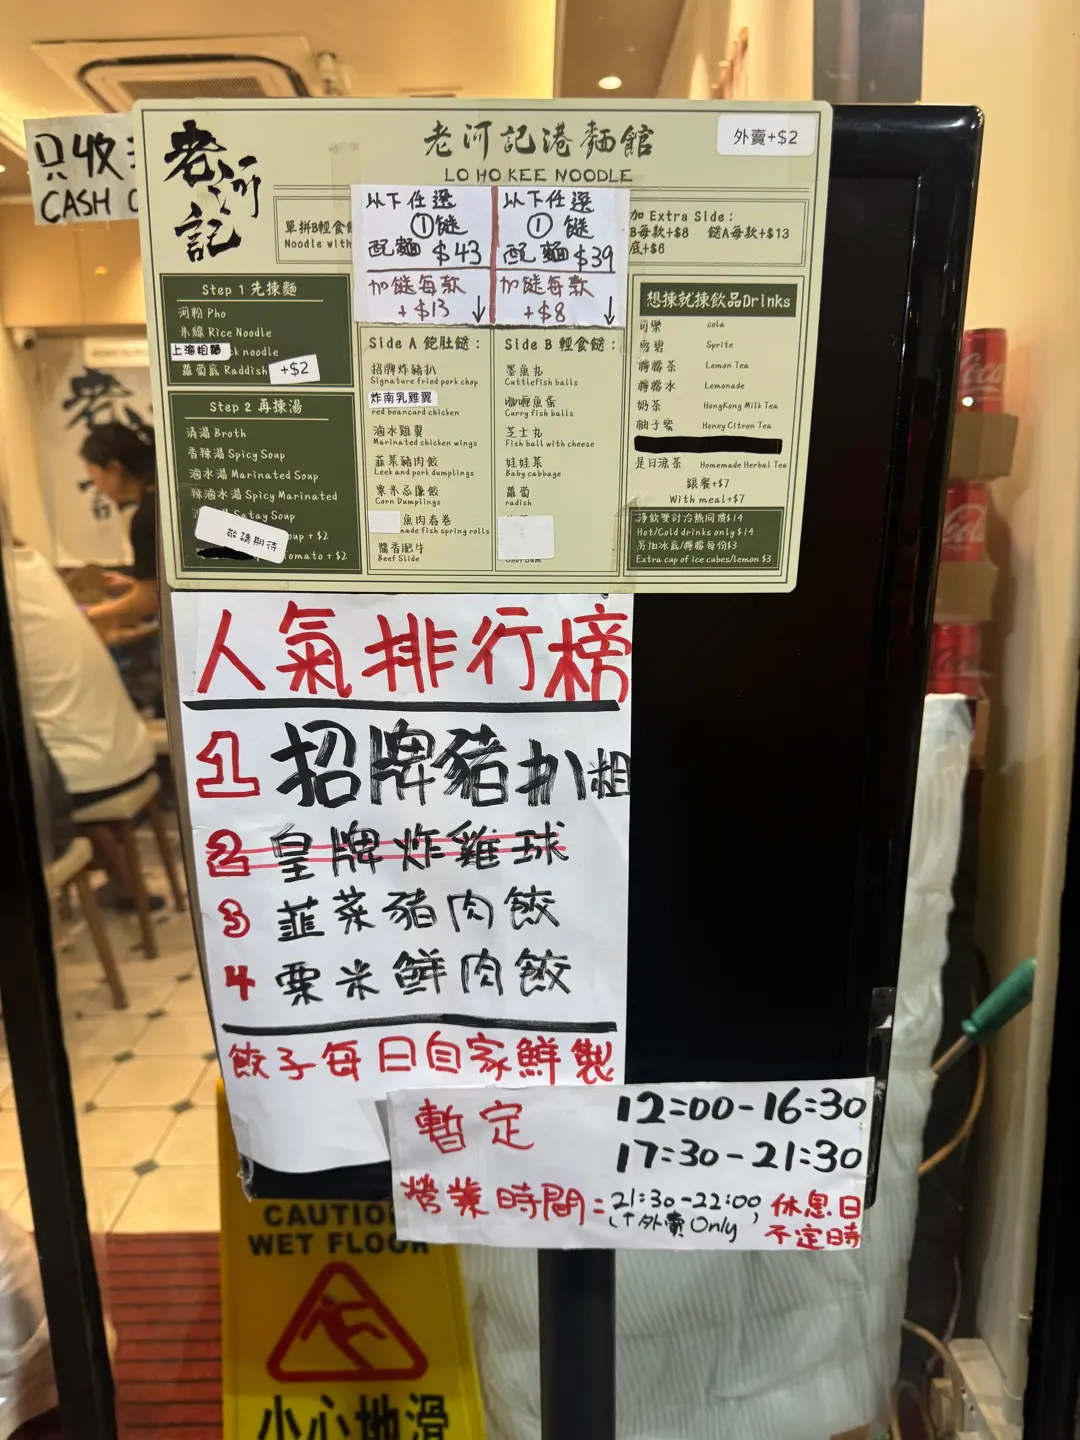 只收
CASH
老河記
老河記港麵館
LO HO KEE NOODLE
外賣+$2
單拼B輕食餸
Noodle with
以下任選
①餸
配麵 $43
加餸每款
+$13 ↓
以下任選
① 餸
配麵 $39
加餸每款
+$8 ↓
加 Extra Side:
B每款+$8 餸A每款+$13
底+$6
Step 1 先揀麵
河粉 Pho
米線 Rice Noodle
上海粗麵 ck noodle
蘿蔔底 Raddish +$2
Step 2 再揀湯
清湯 Broth
香辣湯 Spicy Soup
滷水湯 Marinated Soup
辣滷水湯 Spicy Marinated
Satay Soup
oup + $2
敬請期待
omato + $2
Side A 飽肚餸:
招牌炸豬扒
Signature fried pork chop
炸南乳雞翼
red beancurd chicken
滷水雞翼
Marinated chicken wings
韮菜豬肉餃
Leek and pork dumplings
粟米忌廉餃
Corn Dumplings
魚肉春卷
made fish spring rolls
醬香肥牛
Beef Slide
Side B 輕食餸:
墨魚丸
Cuttlefish balls
咖喱魚蛋
Curry fish balls
芝士丸
Fish ball with cheese
娃娃菜
Baby cabbage
蘿蔔
radish
想揀就揀飲品Drinks
可樂 cola
雪碧 Sprite
檸檬茶 Lemon Tea
檸檬水 Lemonade
奶茶 HongKong Milk Tea
柚子蜜 Honey Citron Tea
是日涼茶 Homemade Herbal Tea
跟餐+$7
With meal+$7
淨飲雙計冷熱同價$14
Hot/Cold drinks only $14
另加冰底/檸檬每份$3
Extra cup of ice cubes/lemon $3
人氣排行榜
1 招牌豬扒粗
2 皇牌炸雞球
3 韮菜豬肉餃
4 粟米鮮肉餃
餃子每日自家鮮製
暫定
12:00-16:30
17:30-21:30
營業時間:
21:30-22:00
(外賣 Only)
休息日
不定時
CAUTION
WET FLOOR
小心地滑